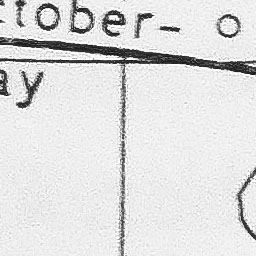 ctober- o
ay